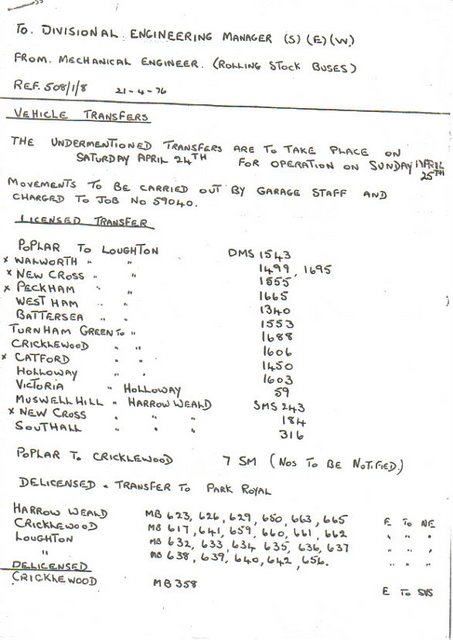 TO. DIVISIONAL ENGINEERING MANAGER (S) (E) (W)
FROM. MECHANICAL ENGINEER. (ROLLING STOCK BUSES)
REF. 508/1/8 21-4-76
VEHICLE TRANSFERS
THE UNDERMENTIONED TRANSFERS ARE TO TAKE PLACE ON
SATURDAY APRIL 24TH FOR OPERATION ON SUNDAY APRIL
25TH
MOVEMENTS TO BE CARRIED OUT BY GARAGE STAFF AND
CHARGED TO JOB NO 59040.
LICENSED TRANSFER
POPLAR TO LOUGHTON DMS 1543
x WALWORTH " " 1499, 1695
x NEW CROSS " " 1555
x PECKHAM " " 1665
WEST HAM " " 1340
BATTERSEA " " 1553
TURNHAM GREEN TO " 1688
CRICKLEWOOD " " 1606
x CATFORD " " 1450
HOLLOWAY " " 1603
VICTORIA " HOLLOWAY 59
MUSWELL HILL " HARROW WEALD SMS 243
x NEW CROSS " " " 184
SOUTHALL " " " 316
POPLAR TO CRICKLEWOOD 7 SM (NOS TO BE NOTIFIED.)
DELICENSED - TRANSFER TO PARK ROYAL
HARROW WEALD MB 623, 626, 629, 650, 663, 665 E TO NE
CRICKLEWOOD MB 617, 641, 659, 660, 661, 662 " " "
LOUGHTON MB 632, 633, 634, 635, 636, 637 " " "
" MB 638, 639, 640, 642, 656. " " "
DELICENSED
CRICKLEWOOD MB 358 E TO SVS